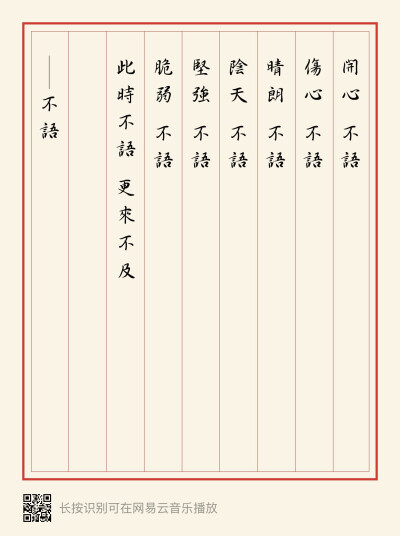 開心 不語
傷心 不語
晴朗 不語
陰天 不語
堅強 不語
脆弱 不語
此時不語 更來不及
—不語
长按识别可在网易云音乐播放